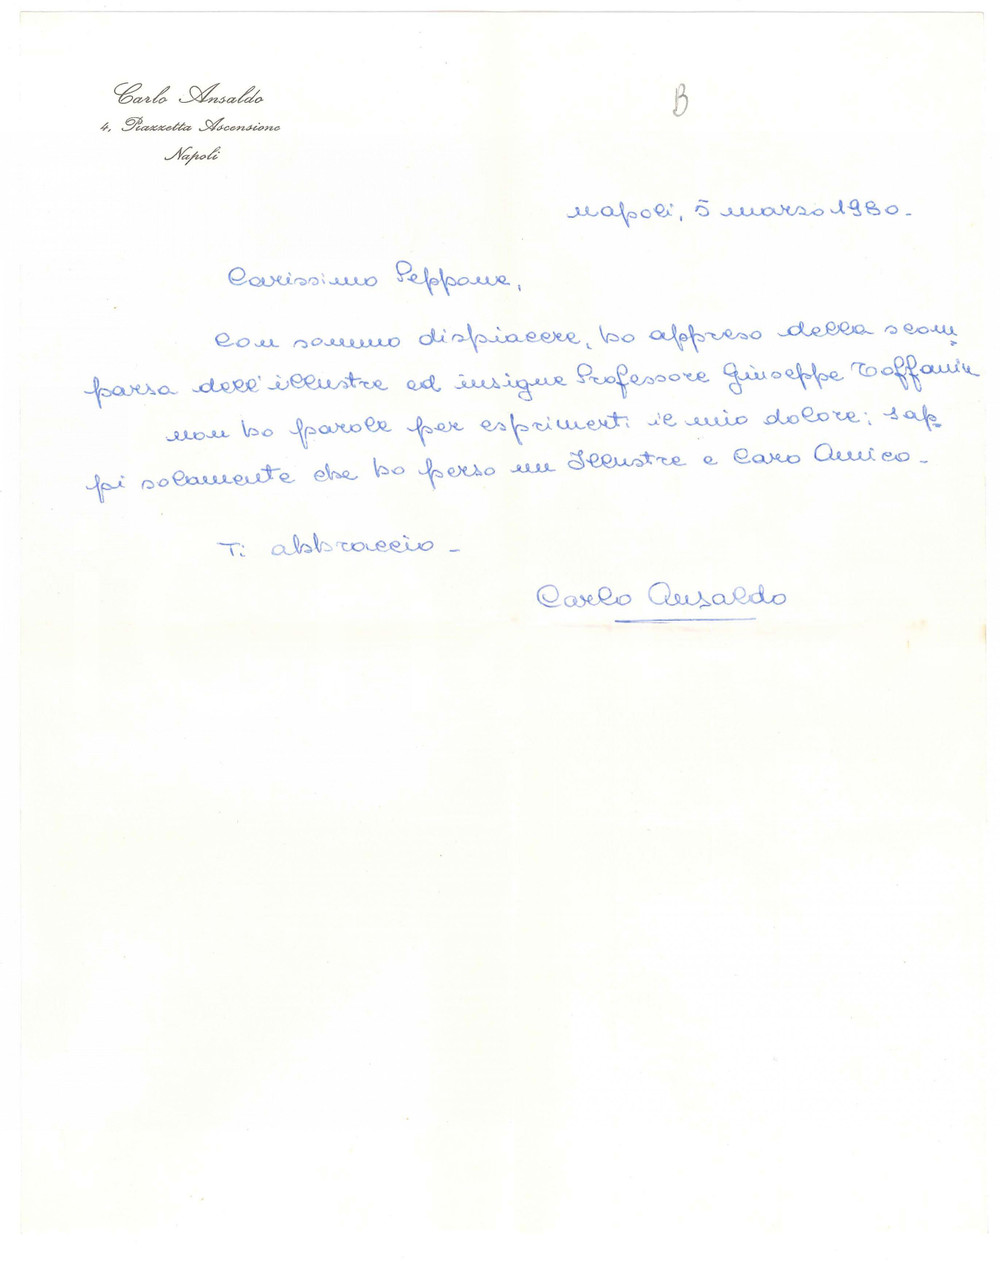 Carlo Ansaldo
4, Piazzetta Ascensione
Napoli
B
Napoli, 5 marzo 1980.
Carissimo Peppone,
con sommo dispiacere, ho appreso della scom=
parsa dell'illustre ed insigne Professore Giuseppe Toffanin
non ho parole per esprimerti il mio dolore; sap
pi solamente che ho perso un Illustre e Caro Amico.
Ti abbraccio -
Carlo Ansaldo